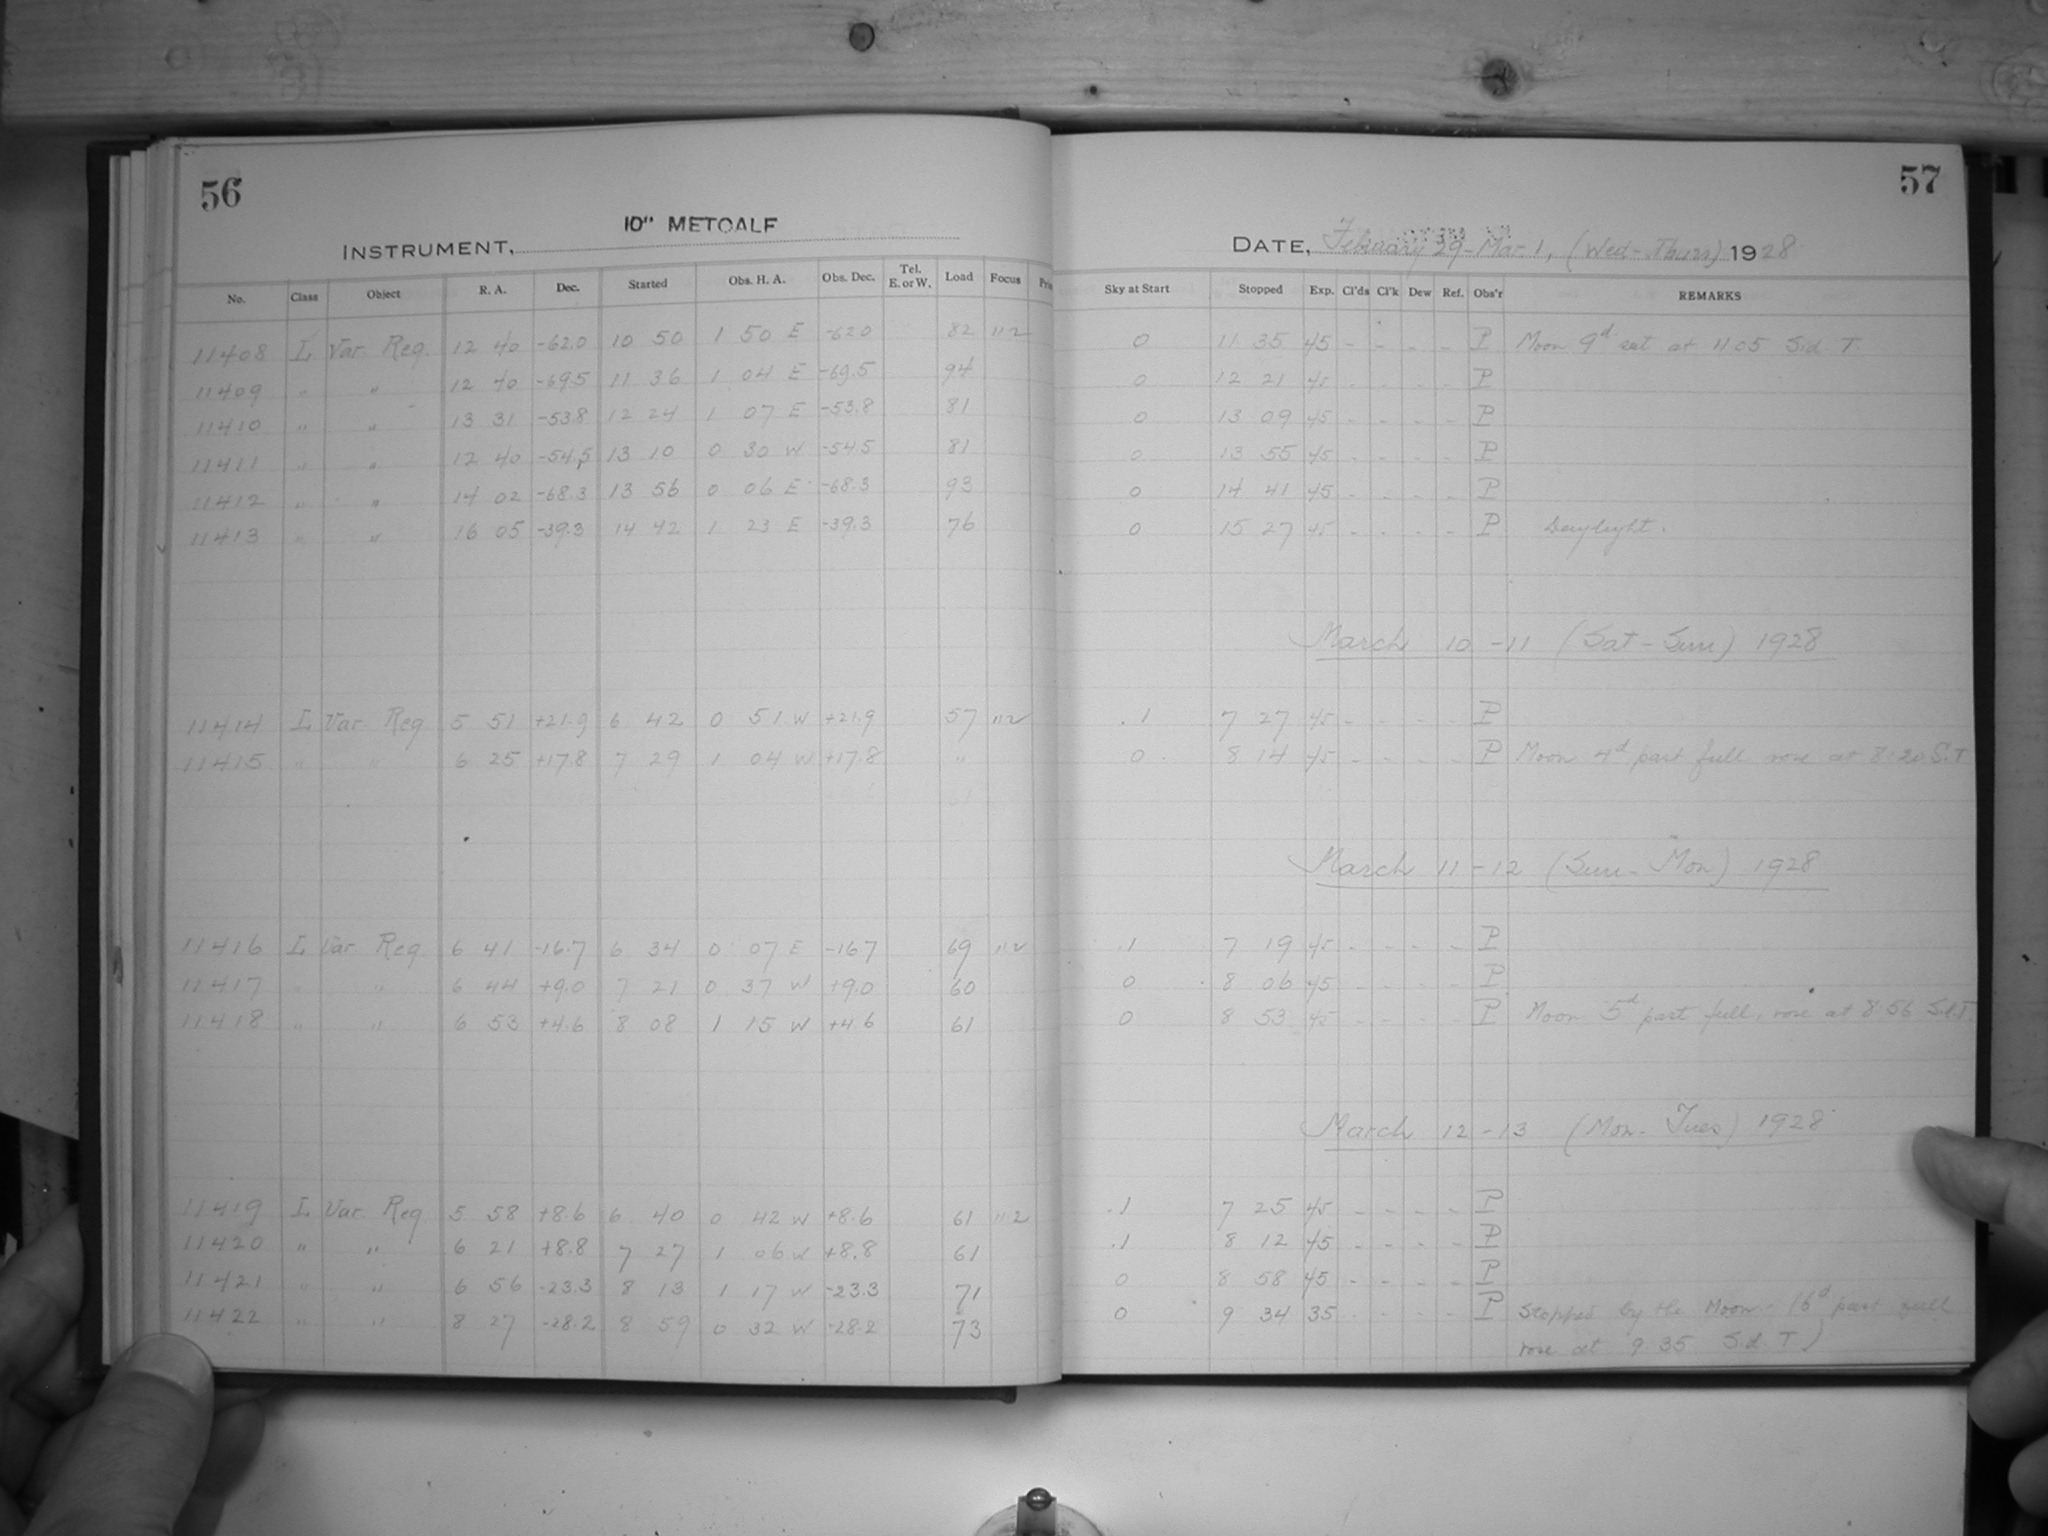 56
10" METCALF
INSTRUMENT,
No. Class Object R. A. Dec. Started Obs. H. A. Obs. Dec. Tel. E. or W. Load Focus
11408 L Var. Reg. 12 40 -62.0 10 50 1 50 E -62.0 82 112
11409 " " 12 40 -69.5 11 36 1 04 E -69.5 94
11410 " " 13 31 -53.8 12 24 1 07 E -53.8 81
11411 " " 12 40 -54.5 13 10 0 30 W -54.5 81
11412 " " 14 02 -68.3 13 56 0 06 E -68.3 93
11413 " " 16 05 -39.3 14 42 1 23 E -39.3 76
11414 L Var. Reg 5 51 +21.9 6 42 0 51 W +21.9 57 112
11415 " " 6 25 +17.8 7 29 1 04 W +17.8 "
11416 L Var. Reg 6 41 -16.7 6 34 0 07 E -16.7 69 112
11417 " " 6 44 +9.0 7 21 0 37 W +9.0 60
11418 " " 6 53 +4.6 8 08 1 15 W +4.6 61
11419 L Var. Reg 5 58 +8.6 6 40 0 42 W +8.6 61 112
11420 " " 6 21 +8.8 7 27 1 06 W +8.8 61
11421 " " 6 56 -23.3 8 13 1 17 W -23.3 71
11422 " " 8 27 -28.2 8 59 0 32 W -28.2 73
57
DATE, February 29 - Mar. 1, (Wed - Thurs) 1928
Sky at Start Stopped Exp. Cl'ds Cl'k Dew Ref. Obs'r REMARKS
0 11 35 45 - - - - P Moon 9d set at 11 05 Sid. T.
0 12 21 45 - - - - P
0 13 09 45 - - - - P
0 13 55 45 - - - - P
0 14 41 45 - - - - P
0 15 27 45 - - - - P Daylight.
March 10 - 11 (Sat - Sun) 1928
.1 7 27 45 - - - - P
0 8 14 45 - - - - P Moon 4d past full rose at 8:20 S.T
March 11 - 12 (Sun - Mon) 1928
.1 7 19 45 - - - - P
0 8 06 45 - - - - P
0 8 53 45 - - - - P Moon 5d past full, rose at 8 56 Sid.T.
March 12 - 13 (Mon - Tues) 1928
.1 7 25 45 - - - - P
.1 8 12 45 - - - - P
0 8 58 45 - - - - P
0 9 34 35 - - - - P Stopped by the Moon - (6d past full
rose at 9 35 Sid. T.)